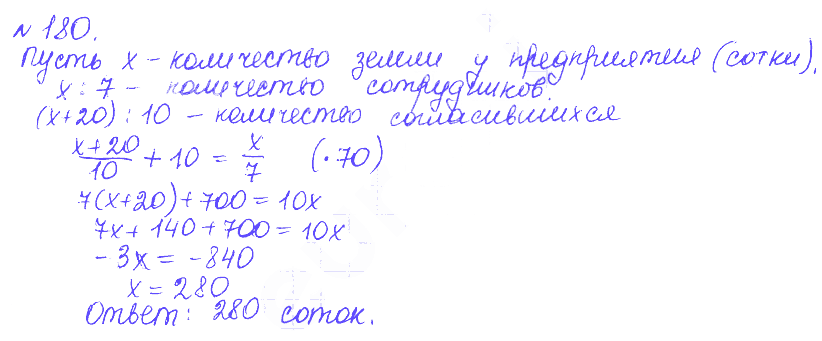 № 180.
Пусть x - количество земли у предприятия (сотки),
x : 7 - количество сотрудников.
(x+20) : 10 - количество согласившихся
(x+20)/10 + 10 = x/7 (·70)
7(x+20) + 700 = 10x
7x + 140 + 700 = 10x
-3x = -840
x = 280
Ответ: 280 соток.